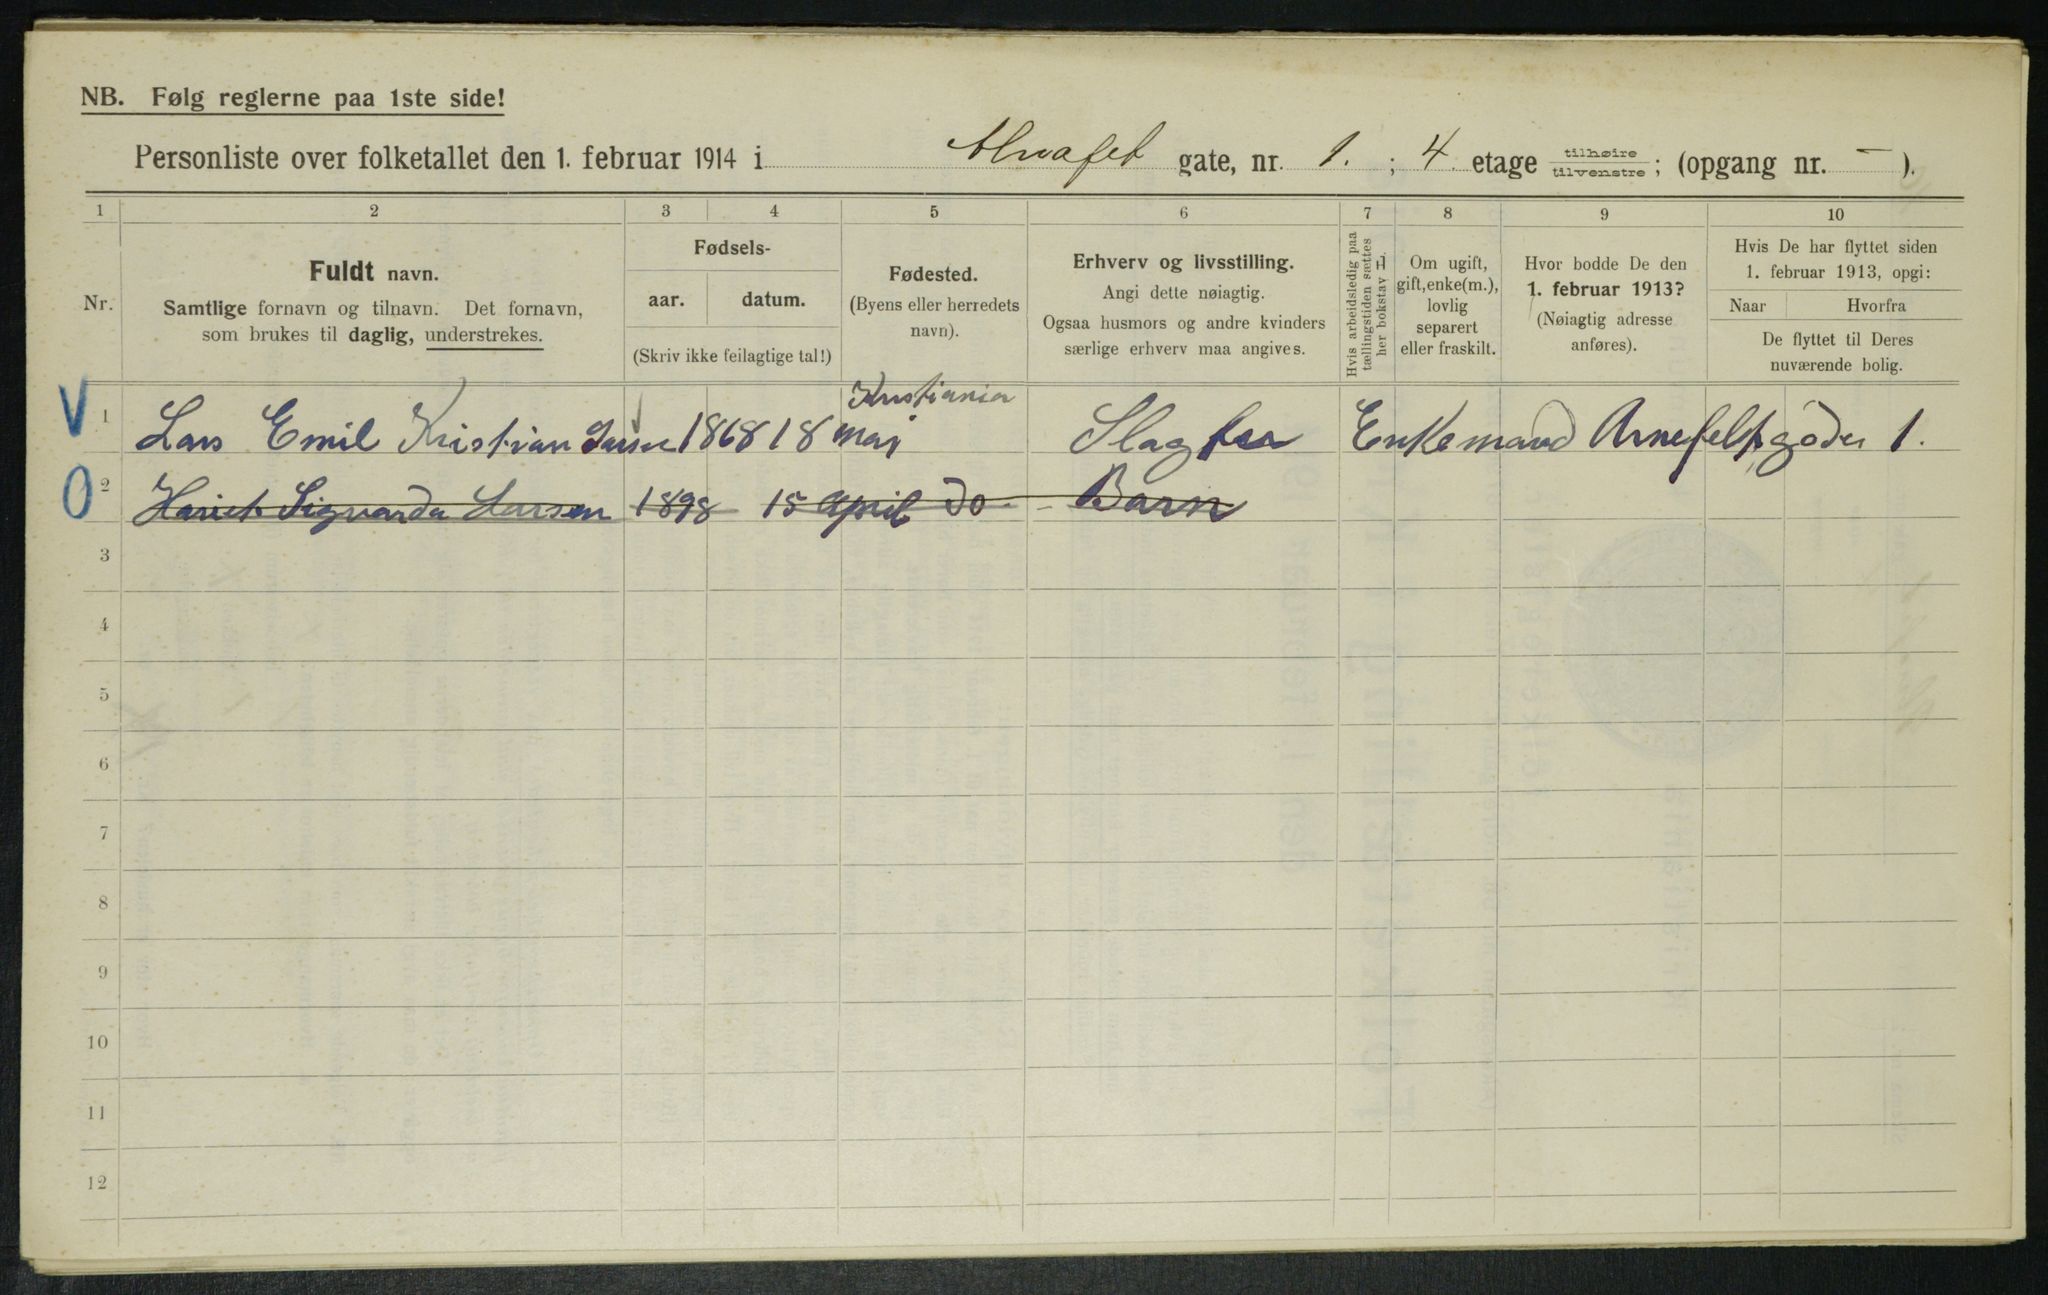 NB. Følg reglerne paa 1ste side!
Personliste over folketallet den 1. februar 1914 i Almafet gate, nr. 1. ; 4. etage tilhøire tilvenstre ; (opgang nr. - ).
1 2 3 4 5 6 7 8 9 10
Nr.
Fuldt navn.
Samtlige fornavn og tilnavn. Det fornavn,
som brukes til daglig, understrekes.
Fødsels-
aar. datum.
(Skriv ikke feilagtige tal!)
Fødested.
(Byens eller herredets
navn).
Erhverv og livsstilling.
Angi dette nøiagtig.
Ogsaa husmors og andre kvinders
særlige erhverv maa angives.
Hvis arbeidsledig paa
tællingstiden sættes
her bokstav L
Om ugift,
gift, enke(m.),
lovlig
separert
eller fraskilt.
Hvor bodde De den
1. februar 1913?
(Nøiagtig adresse
anføres).
Hvis De har flyttet siden
1. februar 1913, opgi:
Naar Hvorfra
De flyttet til Deres
nuværende bolig.
Kristiania
V 1 Lars Emil Kristian Larsen 1868 18 mai Slagter Enkemand Arnefeltsgade 1.
O 2 Hariet Sigvarda Larsen 1898 15 april do - Barn
3
4
5
6
7
8
9
10
11
12